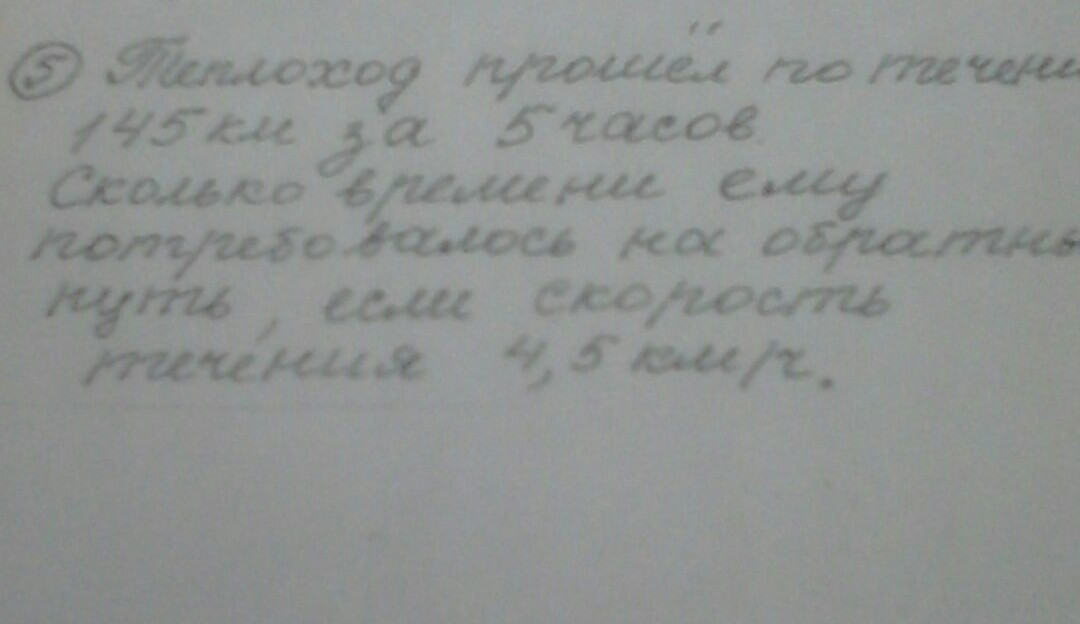 ⑤ Теплоход прошёл по течени
145 км за 5 часов.
Сколько времени ему
потребовалось на обратны
путь, если скорость
течения 4,5 км/ч.